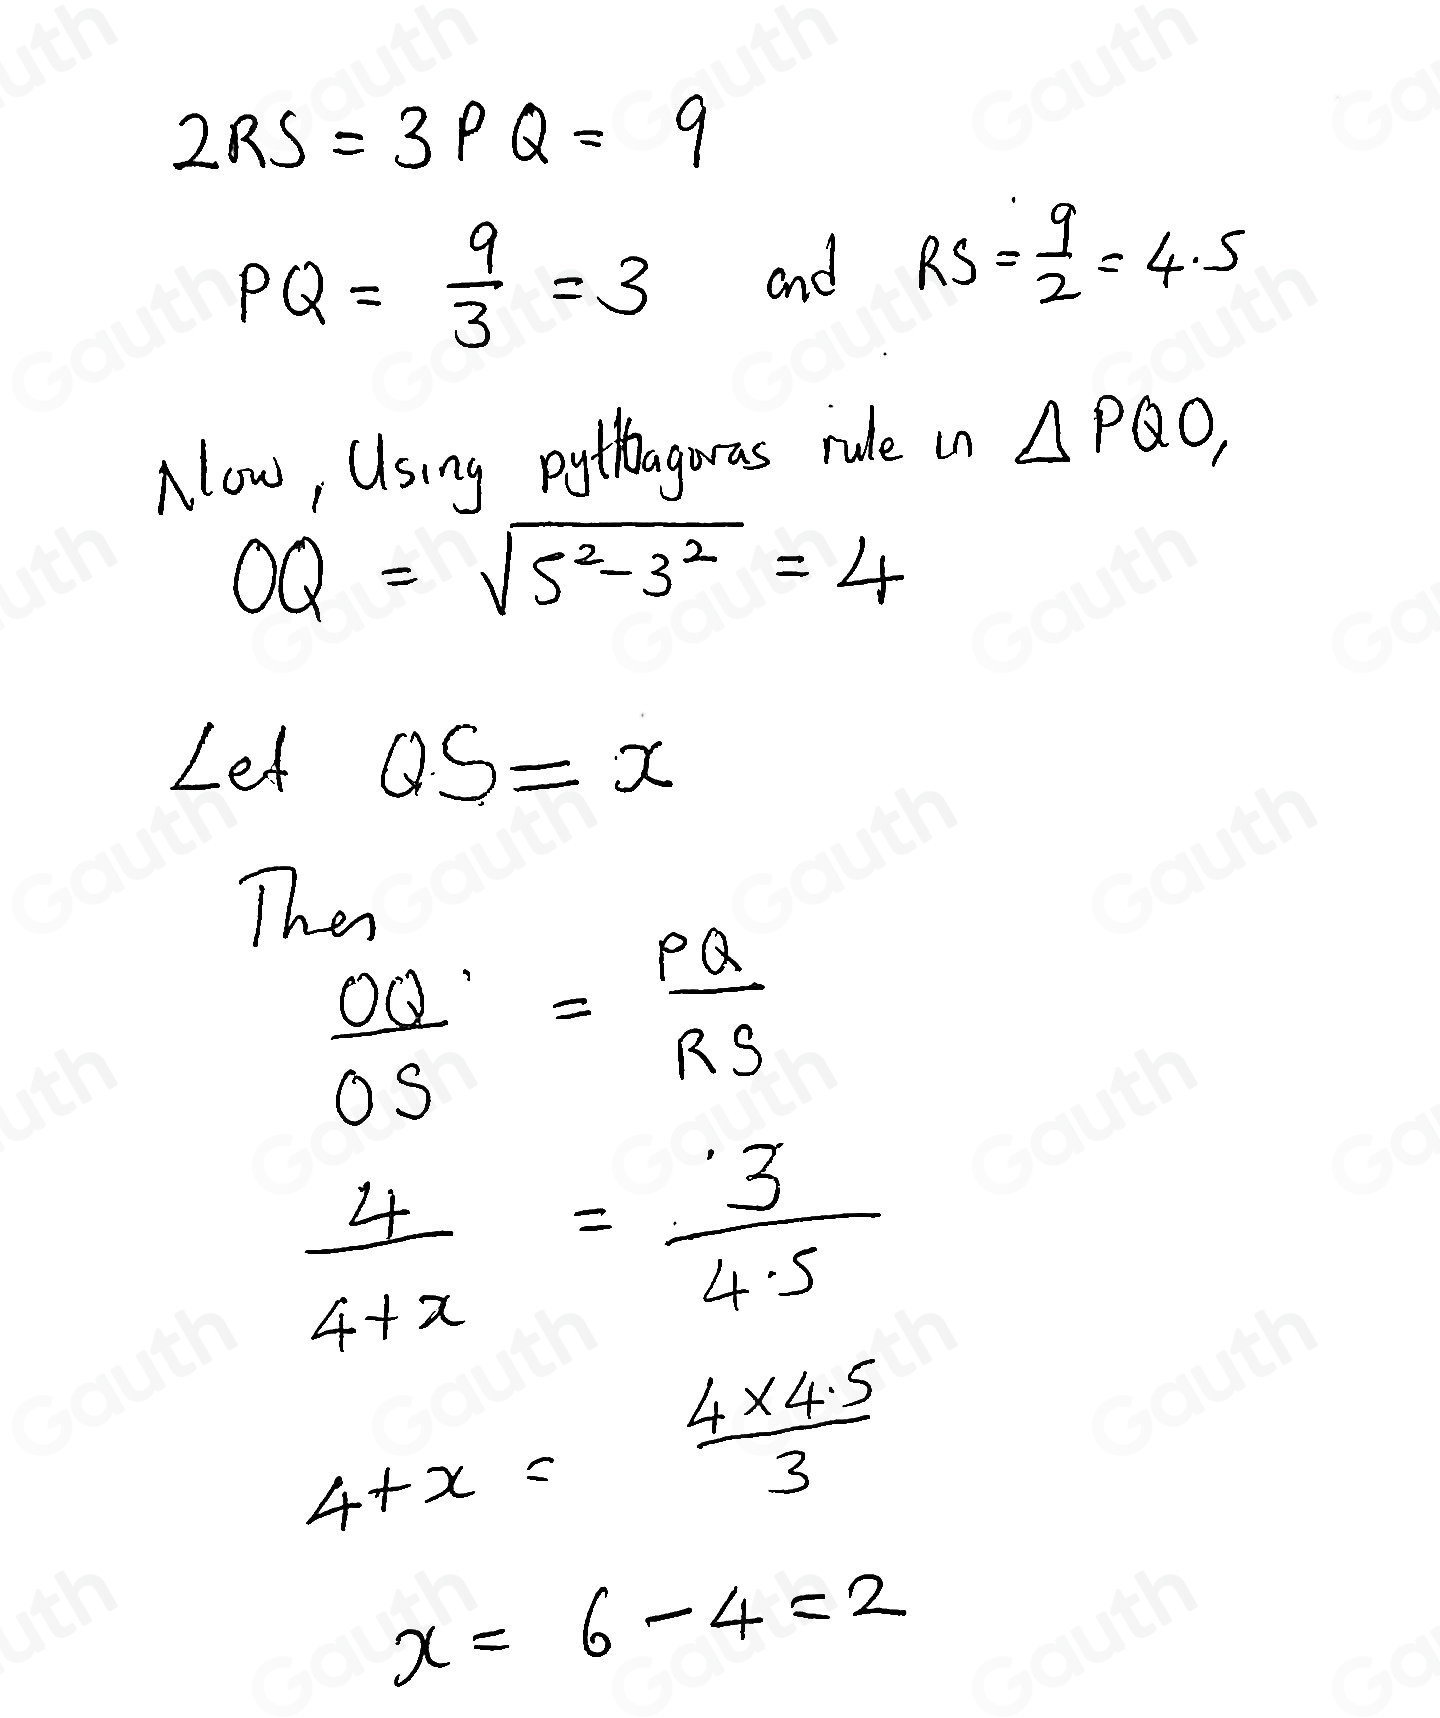 2RS = 3PQ = 9
PQ = 9/3 = 3 and RS = 9/2 = 4.5
Now, Using pythagoras rule in Δ PQO,
OQ = √(5² - 3²) = 4
Let QS = x
Then
OQ/OS = PQ/RS
4/(4+x) = 3/4.5
4+x = (4×4.5)/3
x = 6 - 4 = 2
Gauth